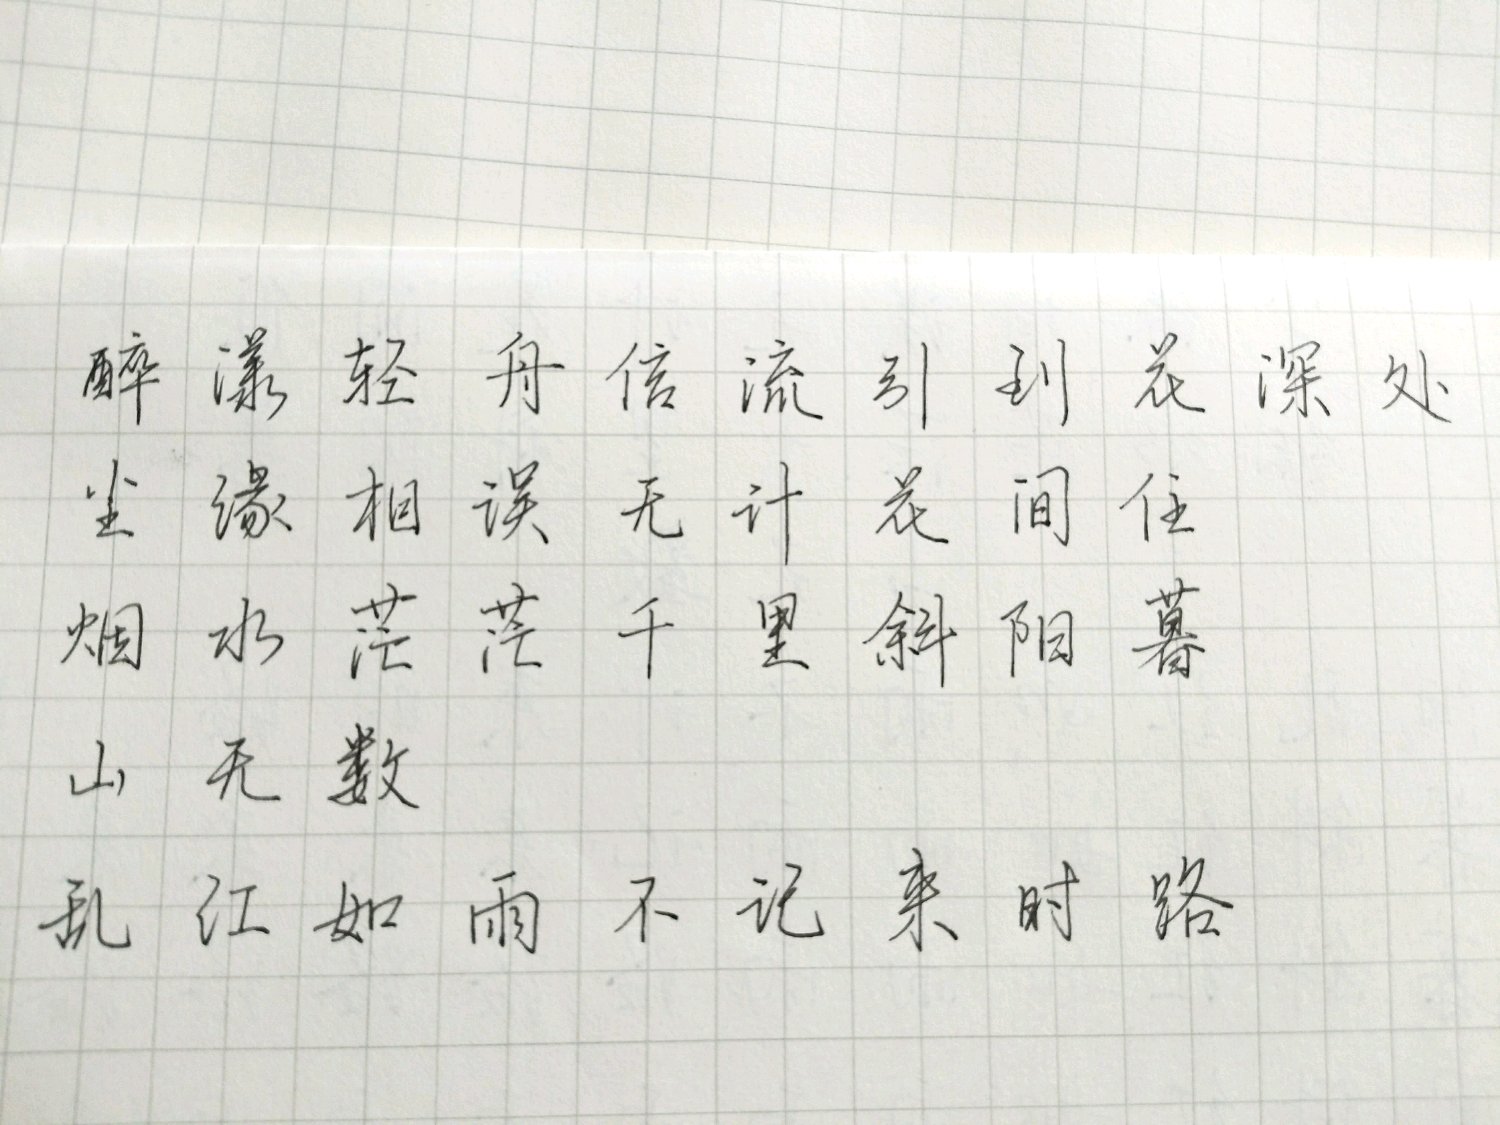 醉漾轻舟信流引到花深处
尘缘相误无计花间住
烟水茫茫千里斜阳暮
山无数
乱红如雨不记来时路